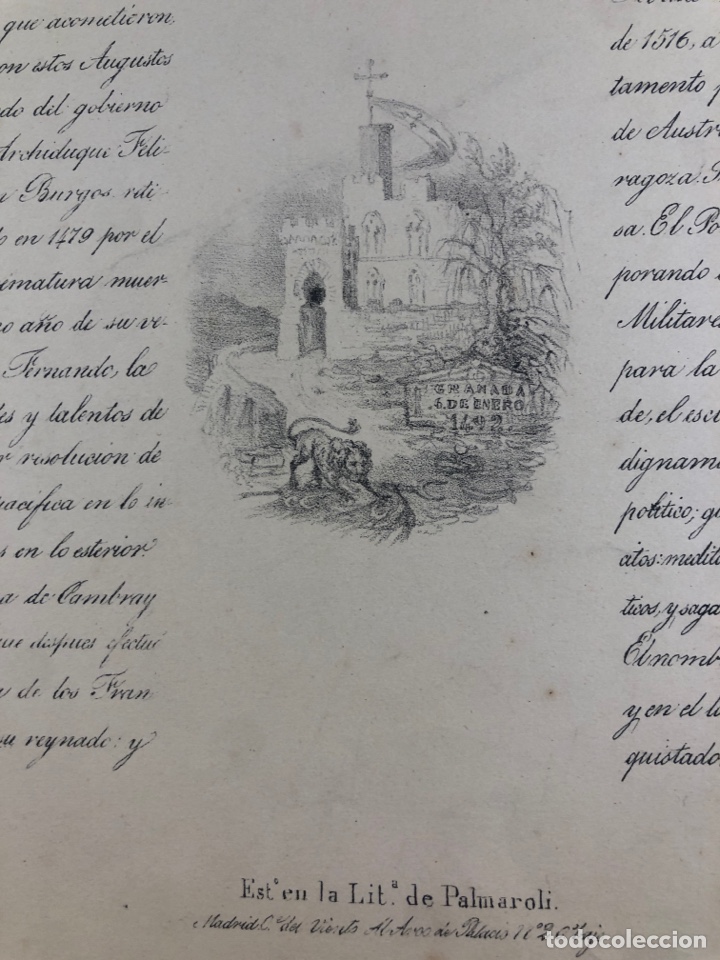 que acometieron,
on estos Augustos
do del gobierno
Archiduque Feli-
n Burgos reti-
o en 1479 por el
ematura muer-
no año de su ve-
Fernando, la
des y talentos de
r resolucion de
pacifica en lo in-
s en lo esterior.
a de Cambray
que despues efectuó
a de los Fran
su reynado: y
GRANADA
DE ENERO
1492
de 1516, a
tamento p
de Austri
ragoza.
sa. El Po
porando a
Militares
para la
de, el escu
dignam
politico; g
citos: medit
ticos, y saga
El nomb
y en el l
quistado,
Est.º en la Lit.ª de Palmaroli.
Madrid C.e del Viento Al Arco de Palacio N.º 2
todocoleccion
todocoleccion.net